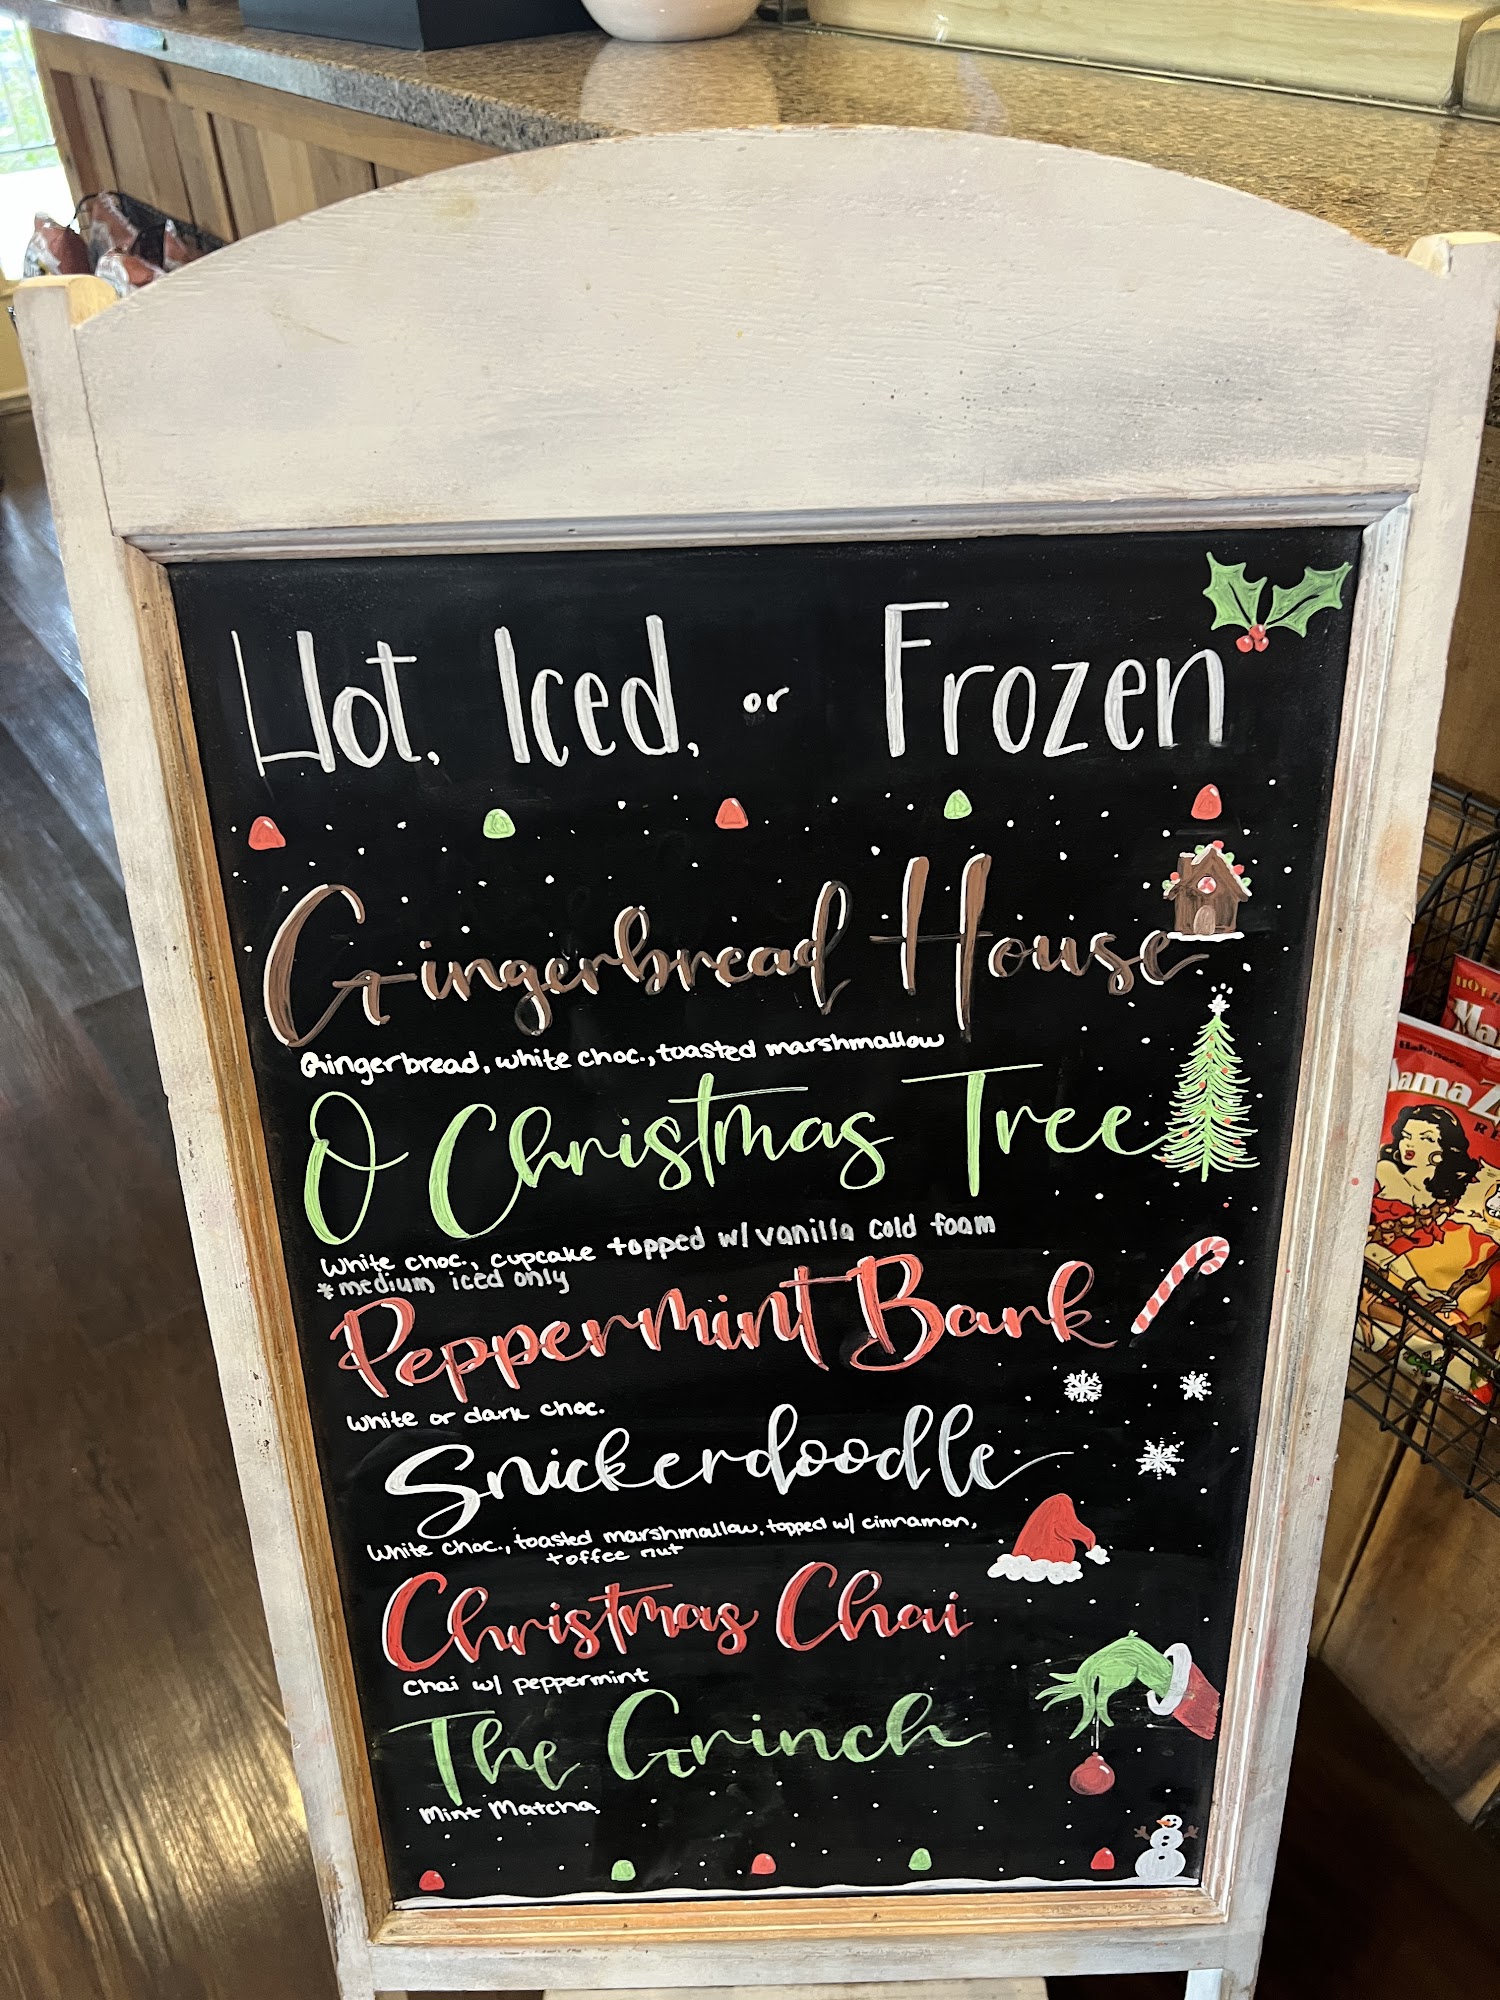 Hot, Iced, or Frozen
Gingerbread House
Gingerbread, white choc., toasted marshmallow
O Christmas Tree
White choc., cupcake topped w/ vanilla cold foam
*medium iced only
Peppermint Bark
White or dark choc.
Snickerdoodle
White choc., toasted marshmallow, topped w/ cinnamon,
toffee nut
Christmas Chai
Chai w/ peppermint
The Grinch
Mint Matcha
HOT
Ma
Habanero
ama Z